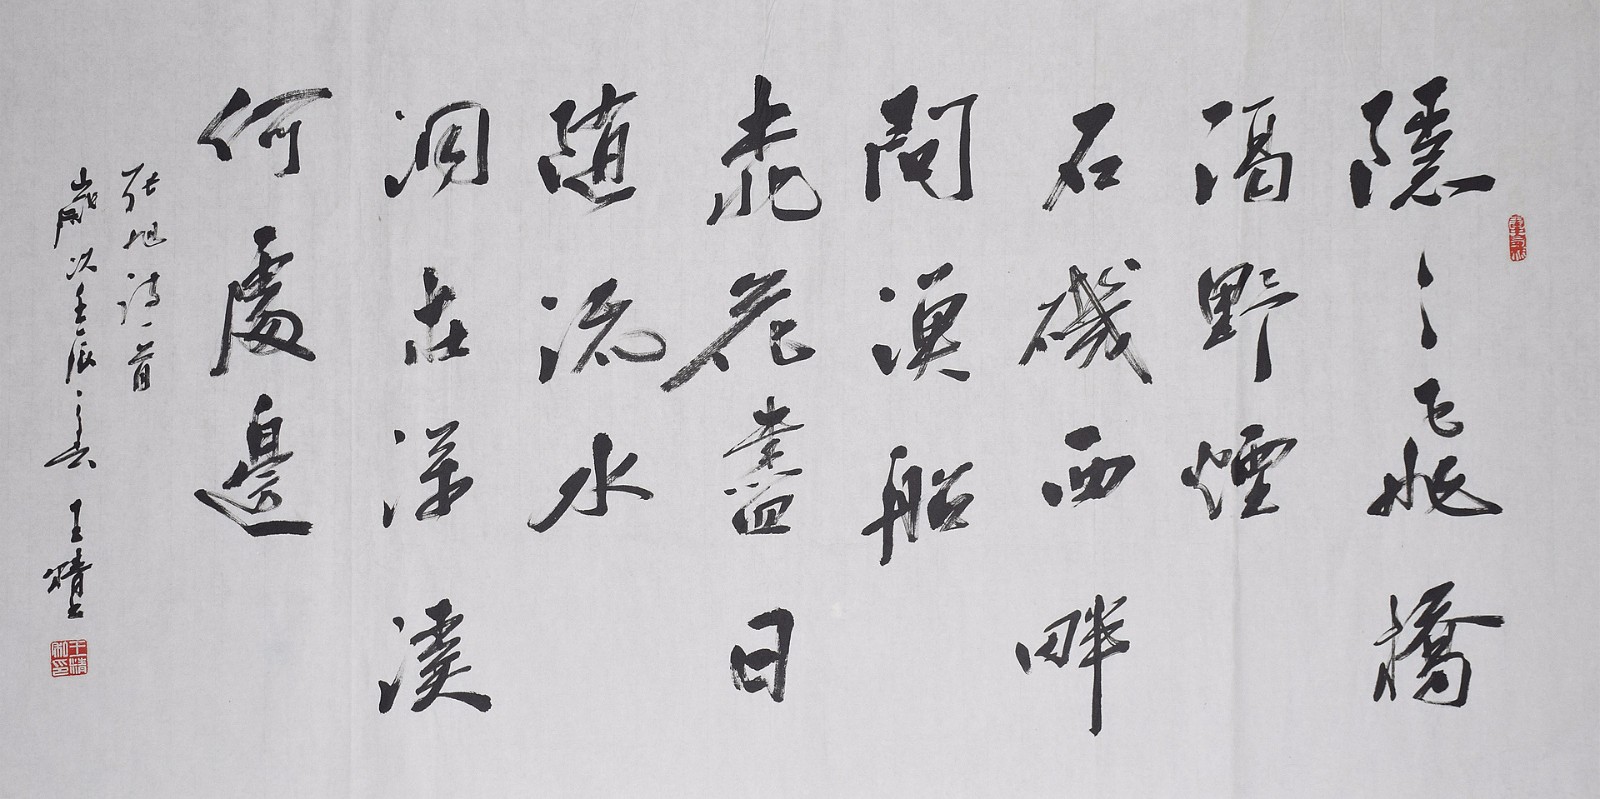 隱〻飛橋
隔野煙
石磯西畔
問漁船
桃花盡日
随流水
洞在清溪
何處邊
張旭詩一首
歲次壬辰之春 王